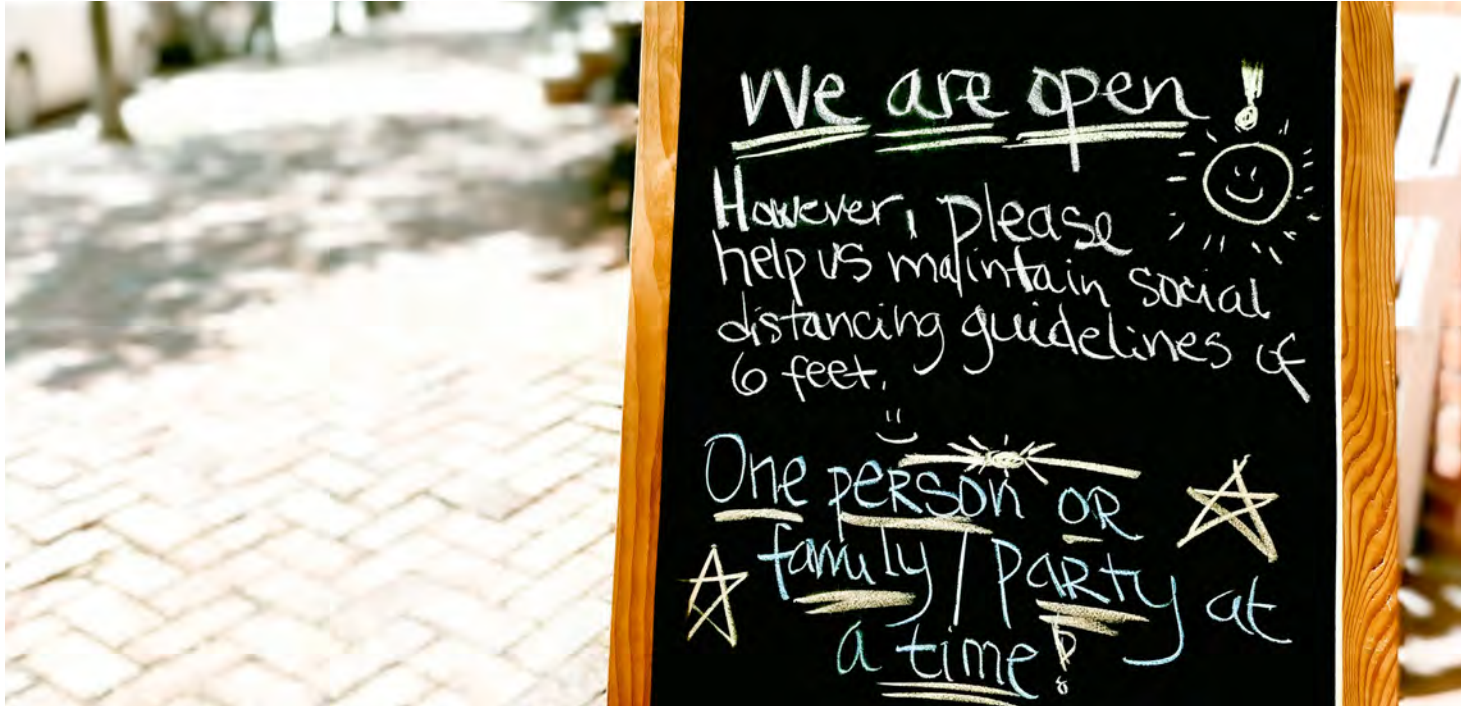 We are open!
However, please
help us maintain social
distancing guidelines of
6 feet.
One person OR
family / party at
a time!